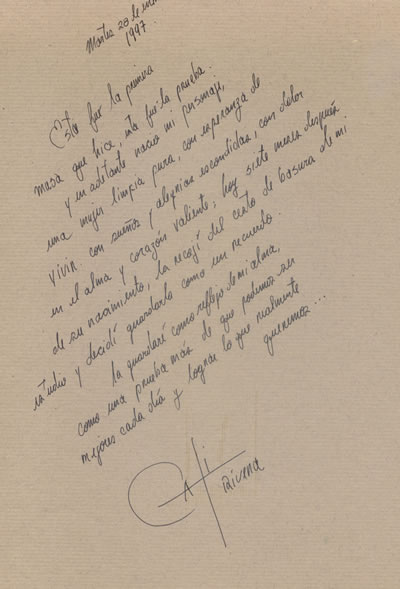 Martes 28 de
1997.
Esta fue la primera
masa que hice, esta fue la prueba.
y en adelante nacio mi personaje,
una mujer limpia pura, con esperanza de
vivir. con sueños y alegrias escondidas, con dolor
en el alma y corazón valiente; hoy siete meses después
de su nacimiento, la recojí del cesto de basura de mi
estudio y decidí guardarla como un recuerdo.
la guardaré como reflejo de mi alma,
como una prueba más de que podemos ser
mejores cada día y lograr lo que realmente
queremos...
CATI
Rivena